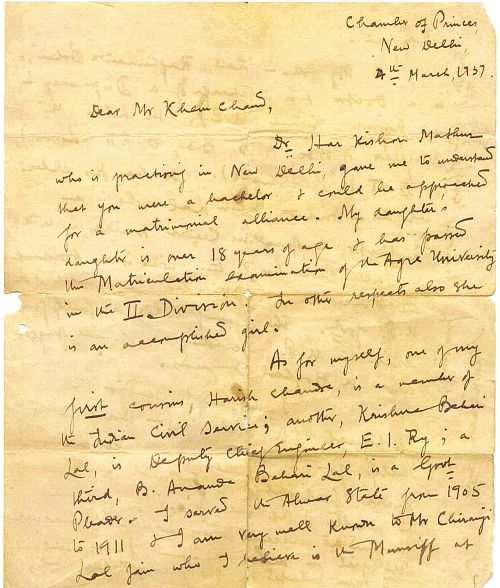 Chamber of Princes,
New Delhi,
4th March, 1937.
Dear Mr Khem Chand,
Dr. Har Kishori Mathur
who is practising in New Delhi, gave me to understand
that you were a bachelor & could be approached
for a matrimonial alliance. My daughter's
daughter is over 18 years of age & has passed
the Matriculation examination of the Agra University
in the II Division. In other respects also she
is an accomplished girl.
As for myself, one of my
first cousins, Harish Chandra, is a member of
the Indian Civil Service; another, Krishna Behari
Lal, is Deputy Chief Engineer, E. I. Ry; a
third, B. Ananda Behari Lal, is a Govt
Pleader. I served the Alwar State from 1905
to 1911 & I am very well known to Mr Chiranji
Lal Jain who I believe is the Munsiff at